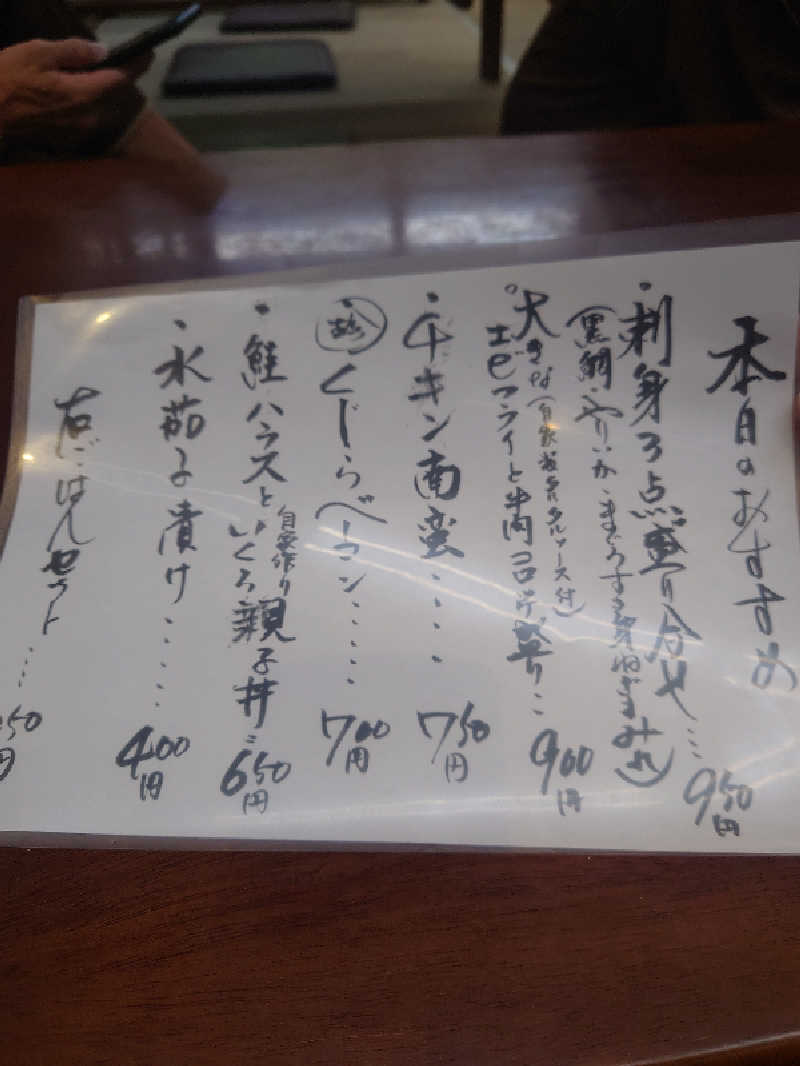 本日のおすすめ
・刺身3点盛り合せ… 950円
(黒鯛・やりいか・まぐろすき身ねぎまみれ)
・大きな(自家製タルタルソース付)
エビフライと牛肉コロッケ盛り… 900円
・チキン南蛮…. 750円
・珍 くじらベーコン….. 700円
・鮭ハラスといくら親子丼… 650円
自家作り
・水茄子漬け….. 400円
右ごはんセット… 50円